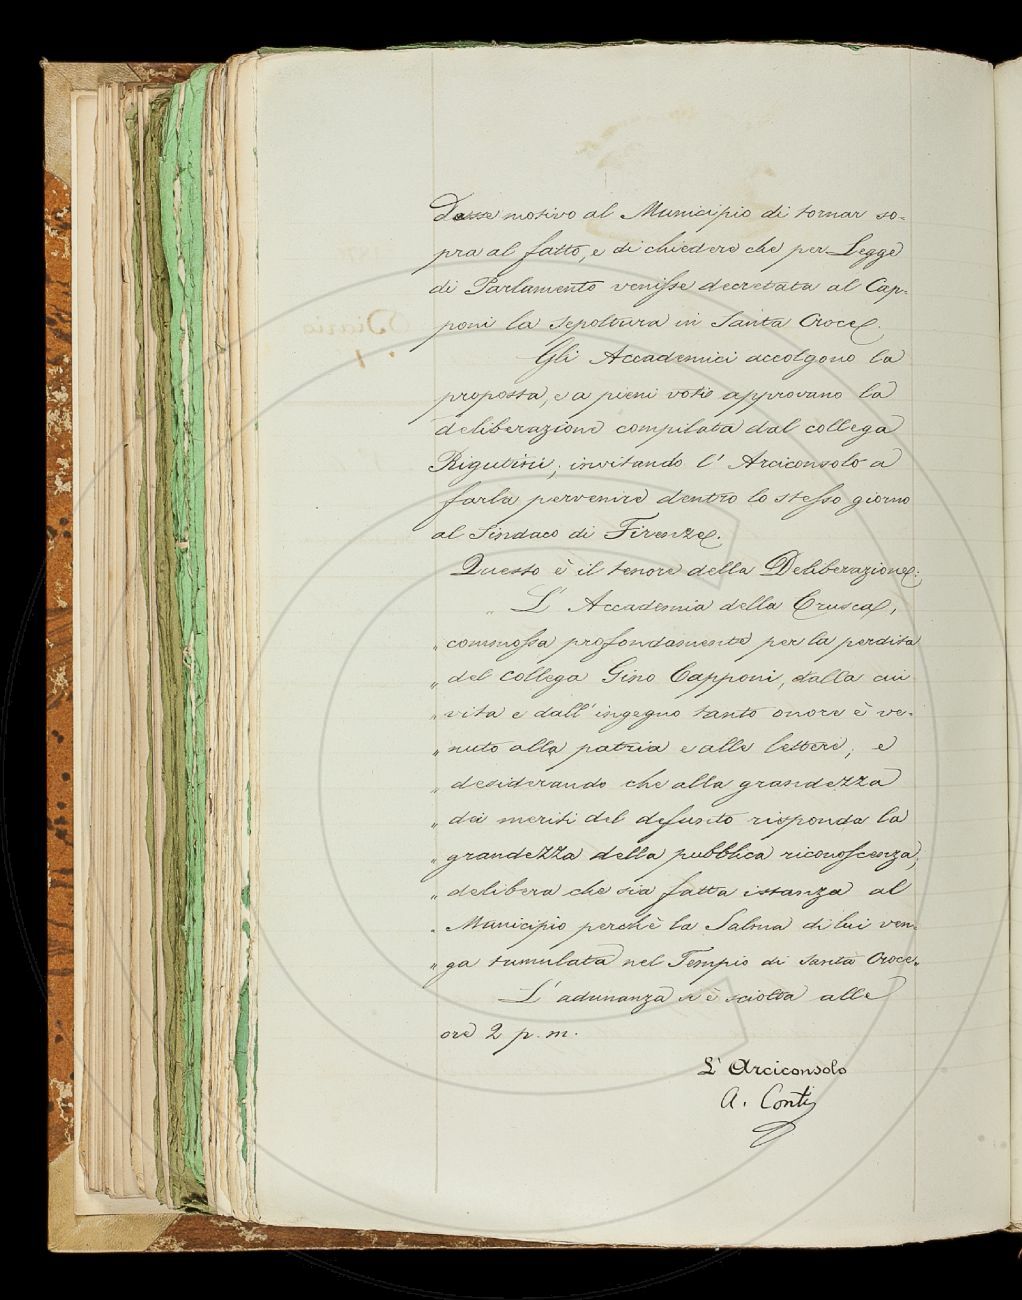 Desse motivo al Municipio di tornar so-
pra al fatto, e di chiedere che per Legge
di Parlamento venisse decretata al Cap-
poni la sepoltura in Santa Croce.
Gli Accademici accolgono la
proposta, e a pieni voti approvano la
deliberazione compilata dal collega
Rigutini; invitando l' Arciconsolo a
farla pervenire dentro lo stesso giorno
al Sindaco di Firenze.
Questo è il tenore della Deliberazione:
„ L' Accademia della Crusca,
„ commossa profondamente per la perdita
„ del collega Gino Capponi, dalla cui
„ vita e dall' ingegno tanto onore è ve-
„ nuto alla patria e alle lettere; e
„ desiderando che alla grandezza
„ dei meriti del defunto risponda la
„ grandezza della pubblica riconoscenza,
„ delibera che sia fatta istanza al
„ Municipio perchè la Salma di lui ven-
„ ga tumulata nel Tempio di Santa Croce.
L' adunanza si è sciolta alle
ore 2 p. m.
L' Arciconsolo
A. Conti